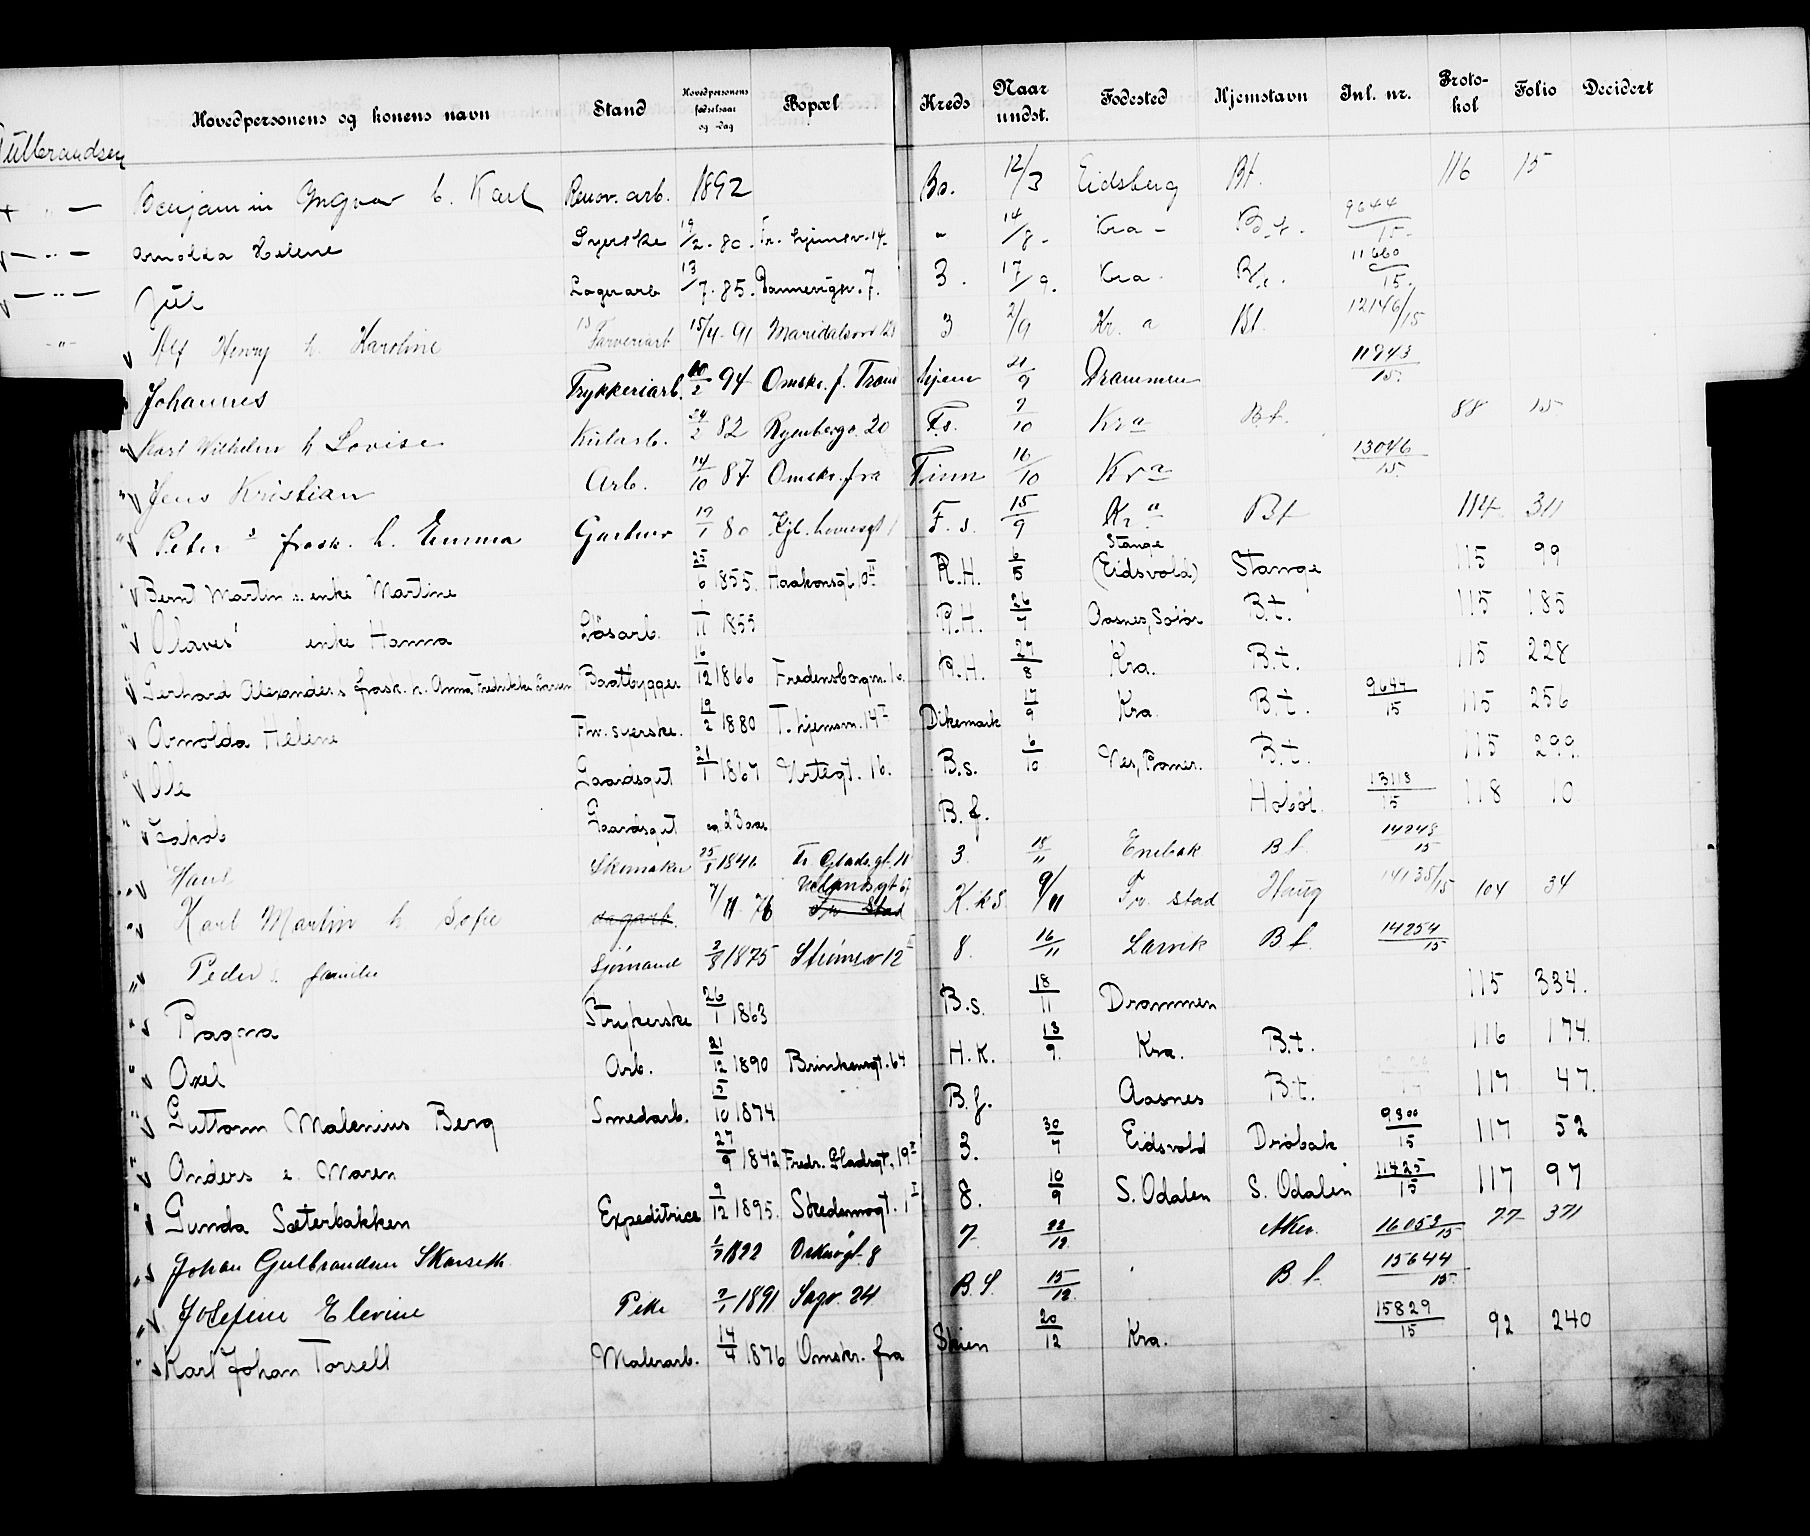 Hovedpersonens og konens navn Stand Hovedpersonens fødselsaar og -dag Bopæl Kreds Naar undst. Fødested Hjemstavn Inl. nr. Proto-kol Folio Decidert
Gulbrandsen
Benjamin Yngvar h. Karl Renov. arb. 1892 Bs. 12/3 Eidsberg Bt. 116 15
Arnolda Helene Syerske 19/2 - 80. Tr. hjemsv. 14 " 14/8 - Kra - B.t. 9644/15
Jul Lagerarb 13/7. 85. Dannevigsv. 7. 3. 17/9. Kra. B.t. 11660/15.
Alf Henry h. Karoline Farveriarb 15/4. 91 Maridalsvn 3 2/9 Kr. a Bt. 12146/15
Johannes Trykkeriarb. 20/2 94 Omskr. f. Trond hjem 21/9 Drammen 11943/15.
Karl Wilhelm h Lovise Kularb. 24/2 82 Ryenbergv. 20 F.s. 7/10 Kra Bt. 88 15.
Jens Kristian Arb. 14/10 87 Omskr. fra Finm 16/10 Kra 13046/15.
Peter s frask. h. Emma Gartner 19/1 80 Kjl. lovensgt 1 F. s. 15/9 Kr a Bt 114 311
Bernt Martin s. enke Martine 25/6 1855. Haakonsgt. 10 II R.H. 6/5 Stange (Eidsvold) Stange 115 99
Olaves' enke Hanna Løsarb. 1/11 1855 R.H. 26/7 Aasnes, Solør B.t. 115 185
Gerhard Alexanders frask. h. Anna Fredrikke Baatbygger 16/12 1866 Fredensborgvn. R.H. 27/8 Kra. B.t. 115 228
Arnolda Helene Fw. syerske. 19/2 1880 T. hjemsvn. 14 I Dikemark 17/9 Kra. B.t. 9644/15 115 256
Ole Gaardsgut 21/1 1867 Urtegt. 16. B.s. 6/10 Nes, Romer. B.t. 115 299.
Jakob Gaardsgut ca. 23 aar B.f. Hobøl. 13113/15 118 10
Hans Skomaker 25/8 1846 Fr. Glads. gt. 18 3. 18/11 Enebak Bt. 14248/15
Karl Martin h Sofie dagarb. 7/11 76 Velandsgt 67 Fr. stad K.k.S 9/11 Fr. stad Haug 14135/15 104 34
Peder s. familie Sjømand 2/8 1875 Strømsv 12 II 8. 16/11 Larvik Bt. 14254/15
Ragna Strykerske 26/1 1863 B.s. 18/11 Drammen 115 334.
Axel Arb. 21/12 1890 Brinkensgt. 64 H.K. 13/9. Kra. B.t. 116 174.
Guttorm Malenius Berg Smedarb. 5/10 1874 B.f. Aasnes B.t. 117 47.
Anders e. Maren 27/9 1842 Fredr. Gladsgt. 19 I 3. 30/7 Eidsvold Drøbak 9300/15 117 52
Gunda Sæterbakken Expeditrice 9/12 1895. Skedsmogt. 1 I 8. 10/9 S. Odalen S. Odalen 11425/15 117 97
Johan Gulbrandsen Skarseth 1/7 1822 Oskersgt. 8 7 22/12. Aker. 16053/15 77 371
Josefine Elevine Pike 2/1 1891 Sagv. 24 B.S. 15/12. Bt. 15644/15.
Karl Johan Torsell Malerarb. 14/4 1876 Omskr. fra Skien 20/12 Kra. 15829/15 92 240